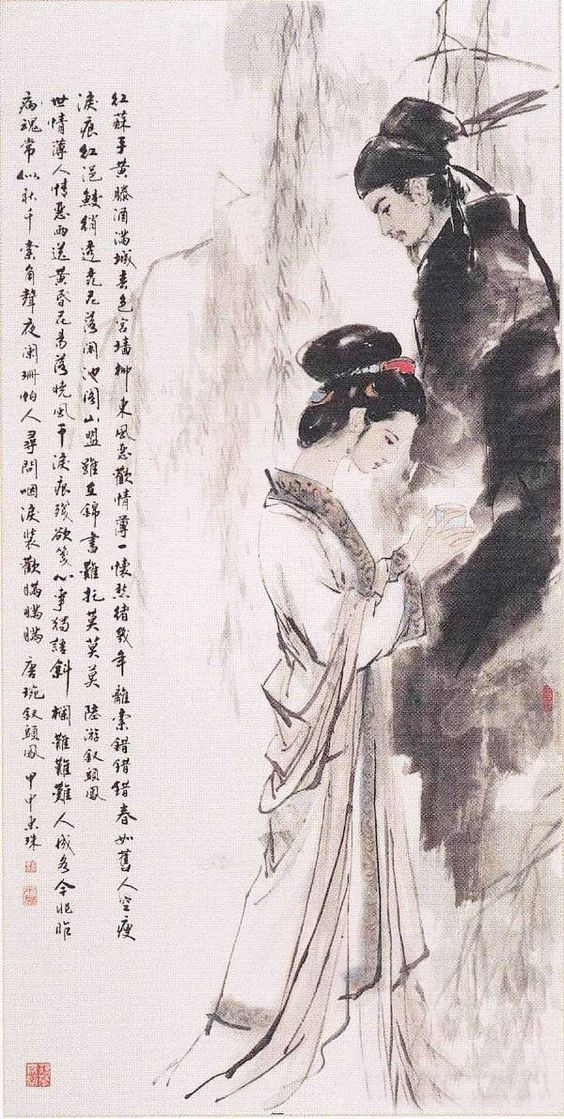 红蘇手黄滕酒满城春色宫墙柳東風惡歡情薄一懷愁緒幾年離索錯錯錯春如舊人空瘦
淚痕红浥鲛绡透桃花落闲池阁山盟雖在錦書難托莫莫莫 陸游釵頭鳳
世情薄人情惡雨送黄昏花易落晓風干淚痕殘欲箋心事獨語斜欄難難難人成各今非昨
病魂常似秋千索角聲夜闌珊怕人尋問咽淚装歡瞞瞞瞞 唐琬釵頭鳳 甲申東珠